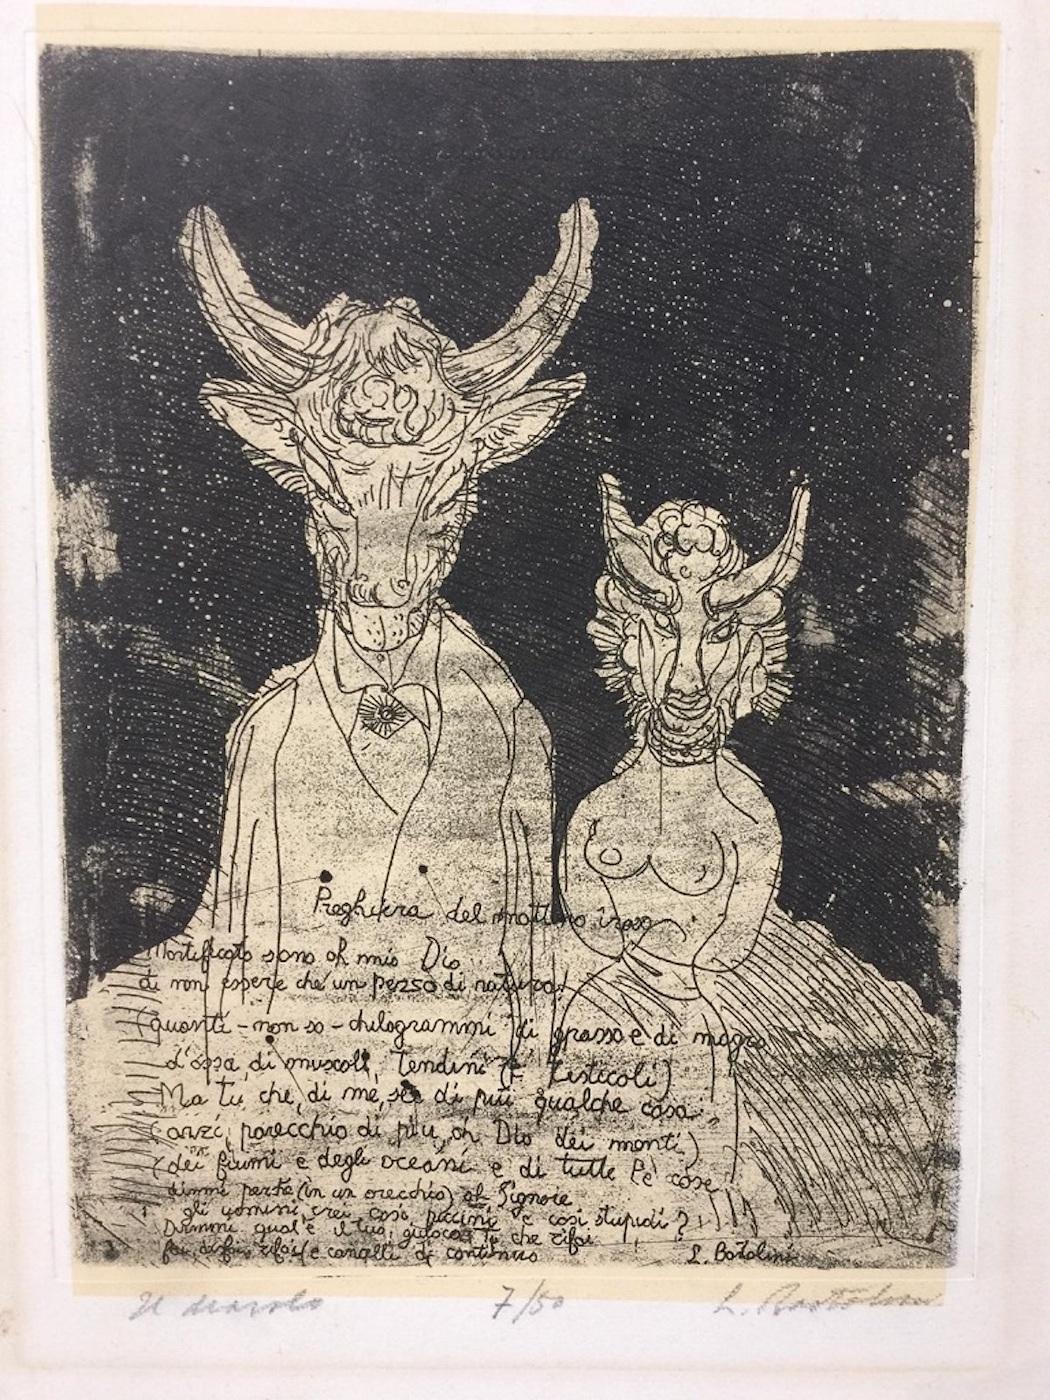 Preghiera del mattino iroso
Mortificato sono oh mio Dio
di non essere che un pezzo di natura!
(quanti - non so - chilogrammi di grasso e di magro
d'ossa, di muscoli, tendini e testicoli)
Ma tu che, di me, sei di più qualche cosa
(anzi, parecchio di più, oh Dio dei monti)
(dei fiumi e degli oceani e di tutte le cose
dimmi perché (in un orecchio) oh Signore
gli uomini crei così piccini e così stupidi?
Dimmi qual'è il tuo giuoco Tu che rifai
fai disfai rifai e cancelli di continuo
L. Bartolini
Il diavolo 7/50 L. Bartolini